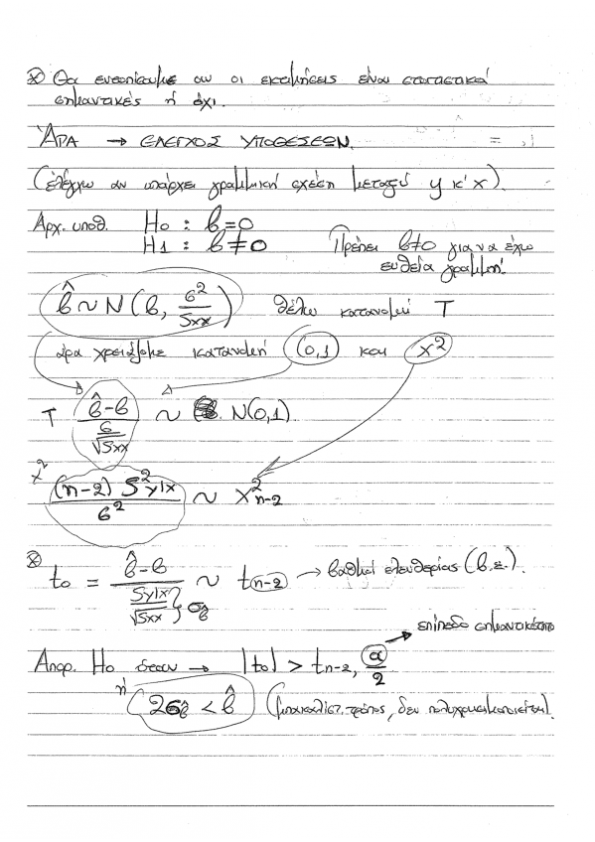 Θα εντοπίσουμε αν οι εκτιμήσεις είναι στατιστικά
σημαντικές ή όχι.
ΆΡΑ → ΕΛΕΓΧΟΣ ΥΠΟΘΕΣΕΩΝ.
(ελέγχω αν υπάρχει γραμμική σχέση μεταξύ y κ' x).
Αρχ. υποθ. H0 : b=0
H1 : b≠0 Πρέπει b≠0 για να έχω
ευθεία γραμμή.
b̂ ~ N(b, σ²/Sxx) θέλω κατανομή T
άρα χρειάζομαι κατανομή (0,1) και x²
T (b̂-b)/(σ/√Sxx) ~ N(0,1)
x² (n-2) S²y|x / σ² ~ x²n-2
t0 = (b̂-b)/(Sy|x/√Sxx) } σb̂ ~ tn-2 → βαθμοί ελευθερίας (β.ε.).
επίπεδο σημαντικότητας
Απορ. H0 όταν → |t0| > tn-2, α/2
ή (2σb̂ < b̂) (μπακαλίστ. τρόπος, δεν πολυχρησιμοποιείται).